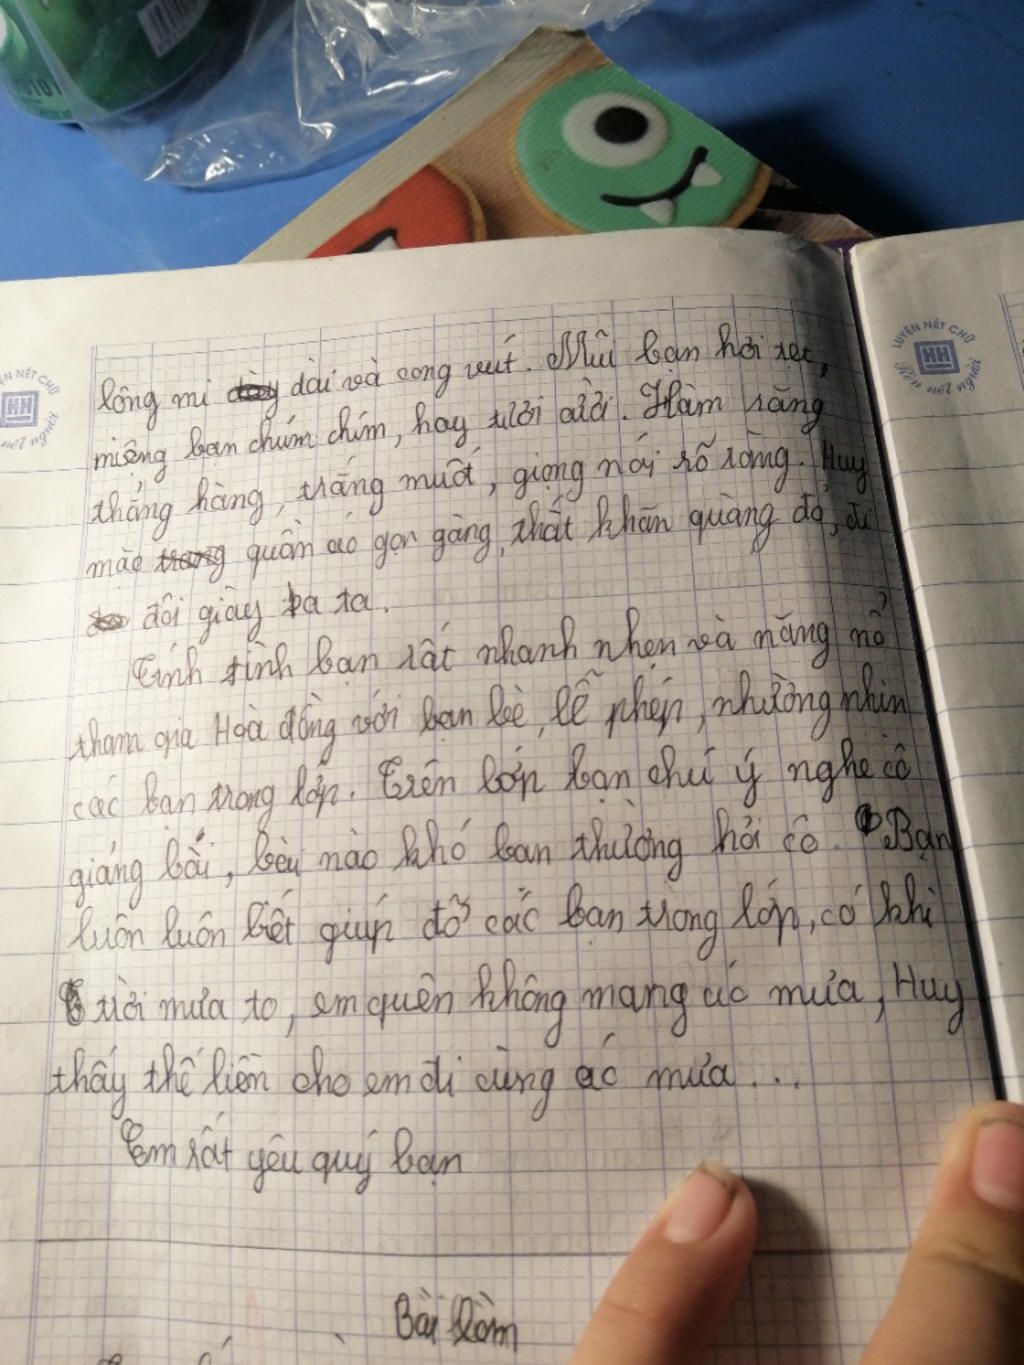 lông mi dài và cong vút. Mũi bạn hơi tẹt,
miệng bạn chúm chím, hay tươi cười. Hàm răng
thẳng hàng, trắng muốt, giọng nói rõ ràng. Huy
mặc quần áo gọn gàng, thắt khăn quàng đỏ, đi
đôi giày ba ta.
Tính tình bạn rất nhanh nhẹn và năng nổ
tham gia Hoà đồng với bạn bè, lễ phép, nhường nhịn
các bạn trong lớp. Trên lớp bạn chú ý nghe cô
giảng bài, bài nào khó bạn thường hỏi cô. Bạn
luôn luôn biết giúp đỡ các bạn trong lớp, có khi
trời mưa to, em quên không mang áo mưa, Huy
thấy thế liền cho em đi cùng áo mưa...
Em rất yêu quý bạn
Bài làm
LUYỆN NÉT CHỮ
RÈN NẾT NGƯỜI
HH